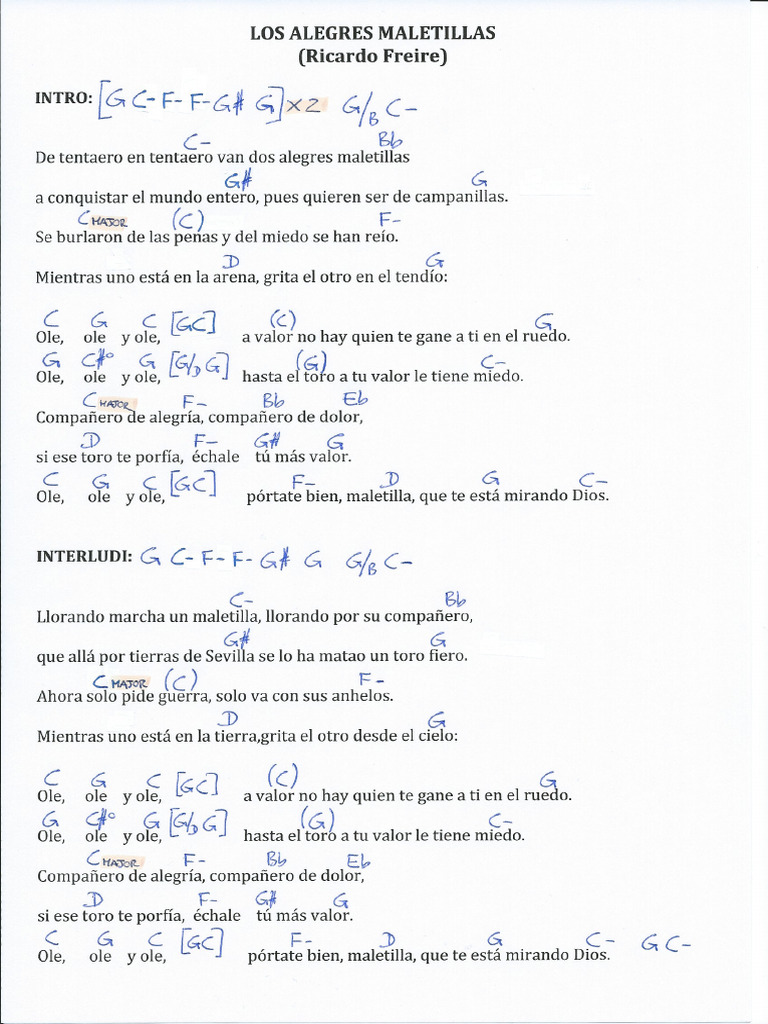 LOS ALEGRES MALETILLAS
(Ricardo Freire)
INTRO: [G C- F- F- G# G] x2 G/B C-
C- Bb
De tentaero en tentaero van dos alegres maletillas
G# G
a conquistar el mundo entero, pues quieren ser de campanillas.
C MAJOR (C) F-
Se burlaron de las penas y del miedo se han reío.
D G
Mientras uno está en la arena, grita el otro en el tendío:
C G C [GC] (C) G
Ole, ole y ole, a valor no hay quien te gane a ti en el ruedo.
G C#° G [G/D G] (G) C-
Ole, ole y ole, hasta el toro a tu valor le tiene miedo.
C MAJOR F- Bb Eb
Compañero de alegría, compañero de dolor,
D F- G# G
si ese toro te porfía, échale tú más valor.
C G C [GC] F- D G C-
Ole, ole y ole, pórtate bien, maletilla, que te está mirando Dios.
INTERLUDI: G C- F- F- G# G G/B C-
C- Bb
Llorando marcha un maletilla, llorando por su compañero,
G# G
que allá por tierras de Sevilla se lo ha matao un toro fiero.
C MAJOR (C) F-
Ahora solo pide guerra, solo va con sus anhelos.
D G
Mientras uno está en la tierra,grita el otro desde el cielo:
C G C [GC] (C) G
Ole, ole y ole, a valor no hay quien te gane a ti en el ruedo.
G C#° G [G/D G] (G) C-
Ole, ole y ole, hasta el toro a tu valor le tiene miedo.
C MAJOR F- Bb Eb
Compañero de alegría, compañero de dolor,
D F- G# G
si ese toro te porfía, échale tú más valor.
C G C [GC] F- D G C- G C-
Ole, ole y ole, pórtate bien, maletilla, que te está mirando Dios.